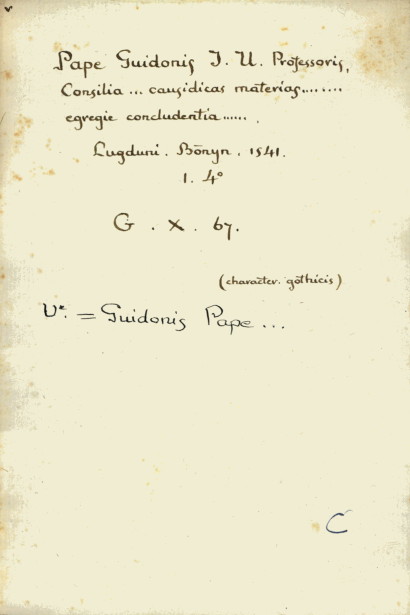 Pape Guidonis J. U. Professoris,
Consilia ... causidicas materias........
egregie concludentia ...... .
Lugduni . Bōnyn . 1541.
1. 4°
G . X . 67.
(character. gōthicis)
Vᵉ. = Guidonis Pape ...
C